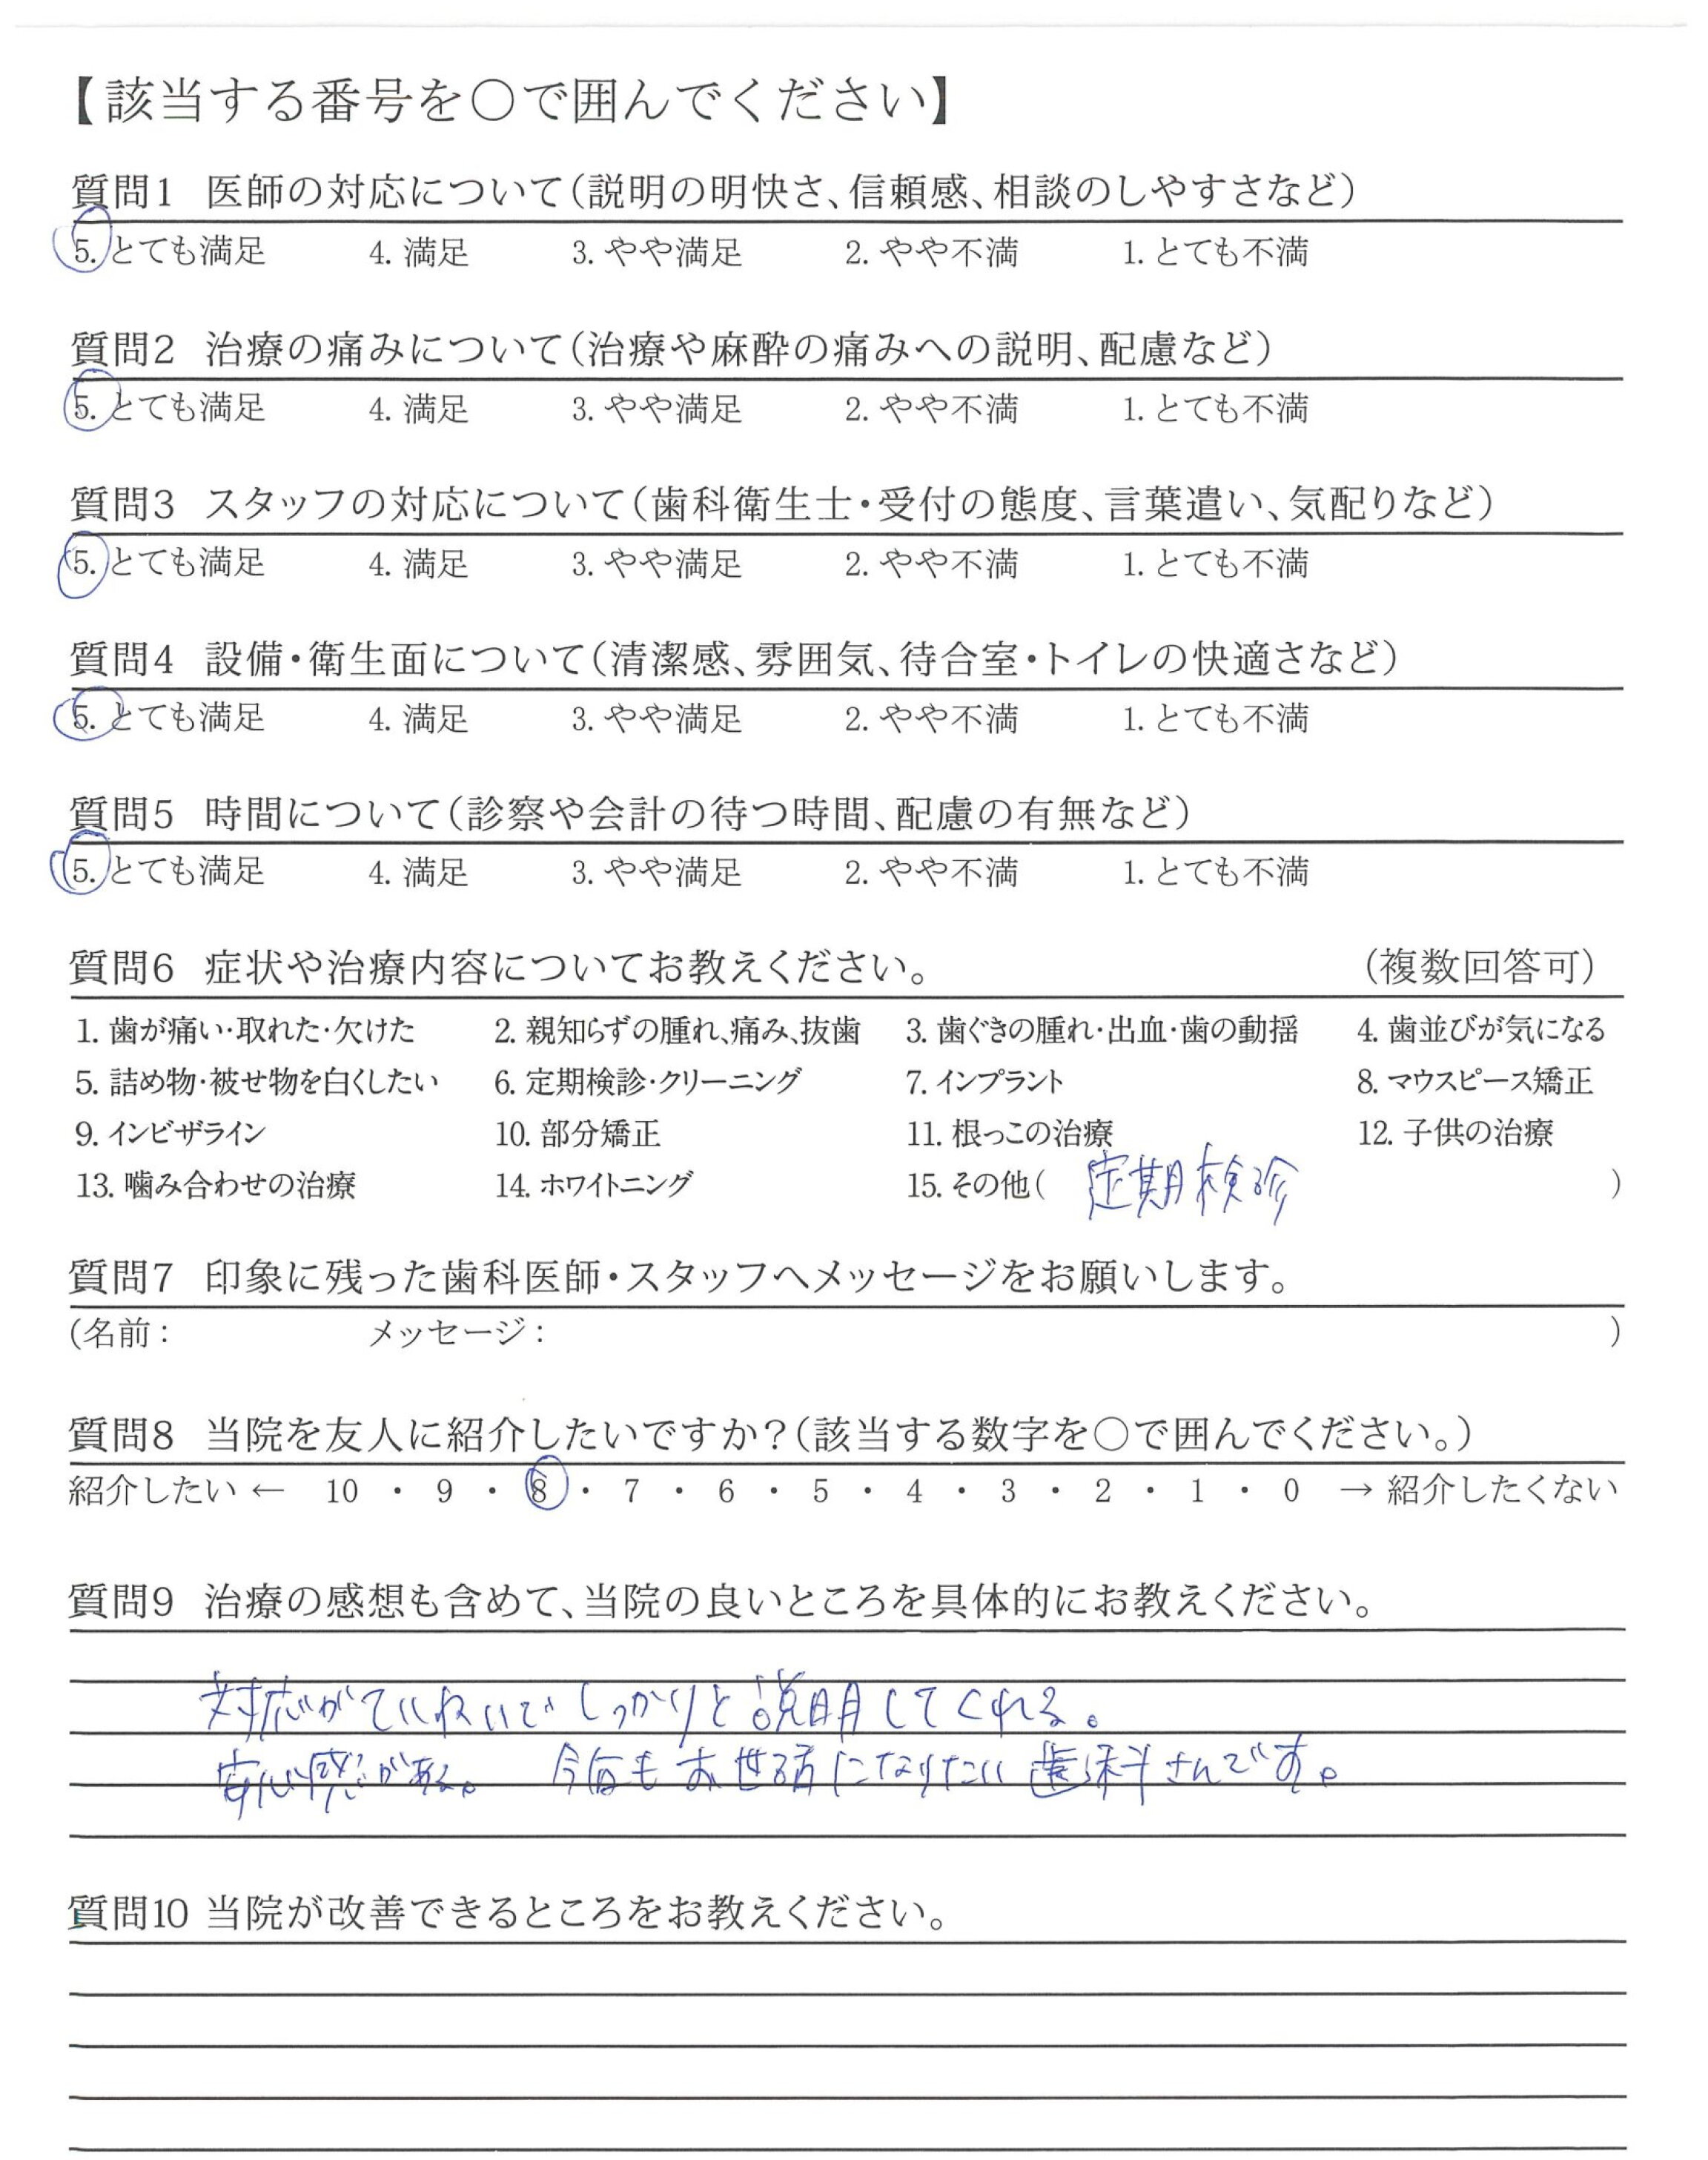 【該当する番号を○で囲んでください】
質問1 医師の対応について(説明の明快さ、信頼感、相談のしやすさなど)
5. とても満足 4. 満足 3. やや満足 2. やや不満 1. とても不満
質問2 治療の痛みについて(治療や麻酔の痛みへの説明、配慮など)
5. とても満足 4. 満足 3. やや満足 2. やや不満 1. とても不満
質問3 スタッフの対応について(歯科衛生士・受付の態度、言葉遣い、気配りなど)
5. とても満足 4. 満足 3. やや満足 2. やや不満 1. とても不満
質問4 設備・衛生面について(清潔感、雰囲気、待合室・トイレの快適さなど)
5. とても満足 4. 満足 3. やや満足 2. やや不満 1. とても不満
質問5 時間について(診察や会計の待つ時間、配慮の有無など)
5. とても満足 4. 満足 3. やや満足 2. やや不満 1. とても不満
質問6 症状や治療内容についてお教えください。 (複数回答可)
1. 歯が痛い・取れた・欠けた 2. 親知らずの腫れ、痛み、抜歯 3. 歯ぐきの腫れ・出血・歯の動揺 4. 歯並びが気になる
5. 詰め物・被せ物を白くしたい 6. 定期検診・クリーニング 7. インプラント 8. マウスピース矯正
9. インビザライン 10. 部分矯正 11. 根っこの治療 12. 子供の治療
13. 噛み合わせの治療 14. ホワイトニング 15. その他( 定期検診 )
質問7 印象に残った歯科医師・スタッフへメッセージをお願いします。
(名前: メッセージ: )
質問8 当院を友人に紹介したいですか?(該当する数字を○で囲んでください。)
紹介したい ← 10 ・ 9 ・ 8 ・ 7 ・ 6 ・ 5 ・ 4 ・ 3 ・ 2 ・ 1 ・ 0 → 紹介したくない
質問9 治療の感想も含めて、当院の良いところを具体的にお教えください。
対応がていねいで しっかりと説明してくれる。
安心感がある。 今後もお世話になりたい歯科さんです。
質問10 当院が改善できるところをお教えください。